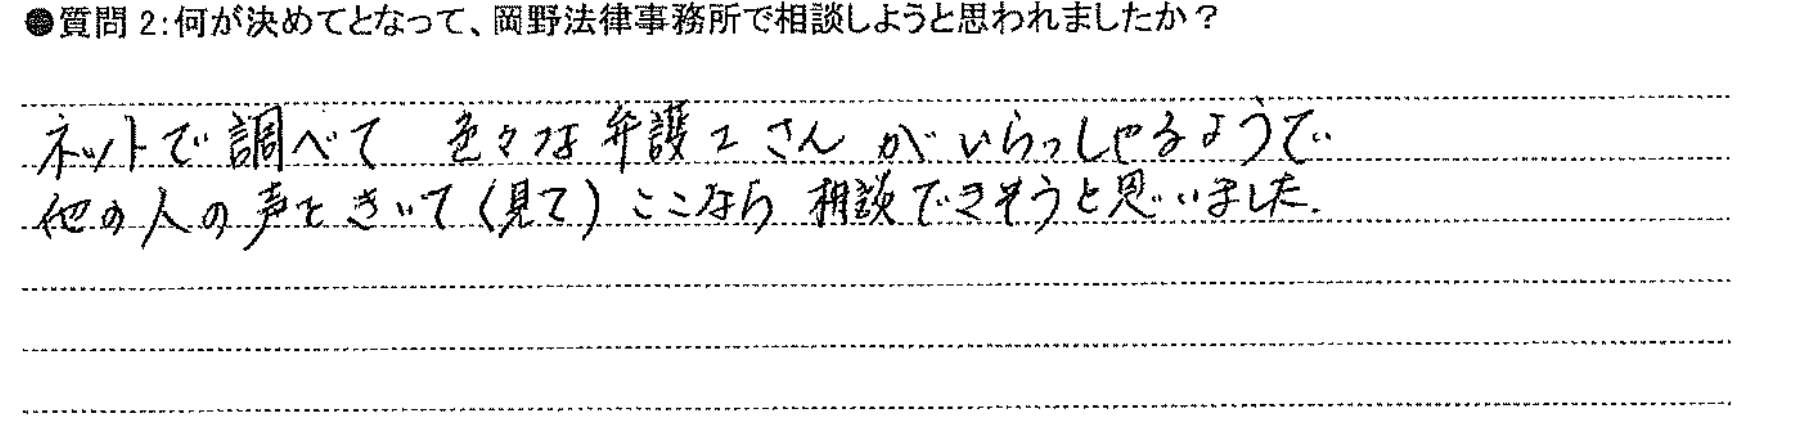 ●質問 2:何が決めてとなって、岡野法律事務所で相談しようと思われましたか？
ネットで調べて 色々な弁護士さんがいらっしゃるようで
他の人の声をきいて(見て)ここなら相談できそうと思いました.